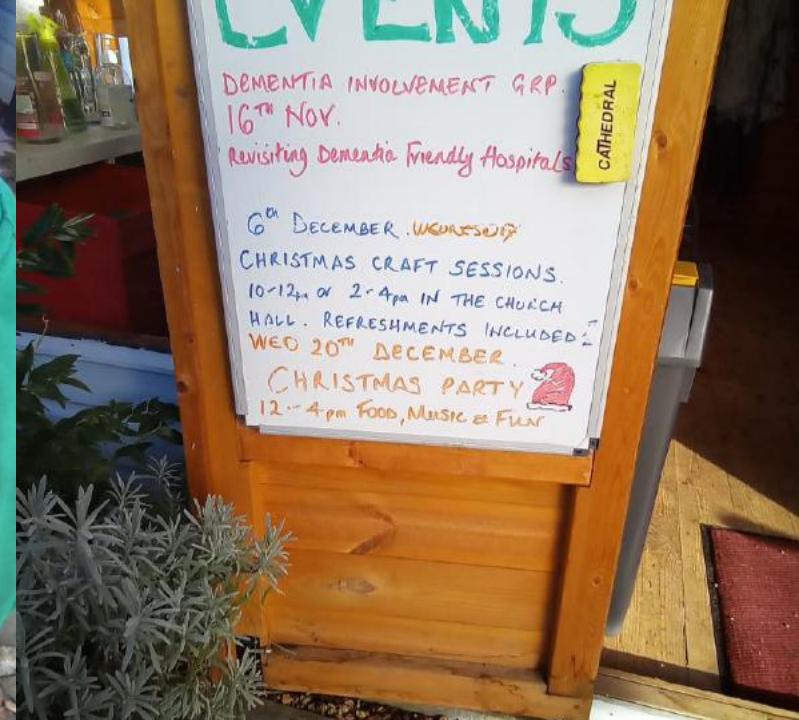 EVENTS
DEMENTIA INVOLVEMENT GRP.
16TH NOV.
Revisiting Dementia Friendly Hospitals
CATHEDRAL
6th DECEMBER. WEDNESDAY
CHRISTMAS CRAFT SESSIONS.
10-12pm or 2-4pm IN THE CHURCH
HALL. REFRESHMENTS INCLUDED!
WED 20TH DECEMBER.
CHRISTMAS PARTY
12-4pm FOOD, MUSIC & FUN